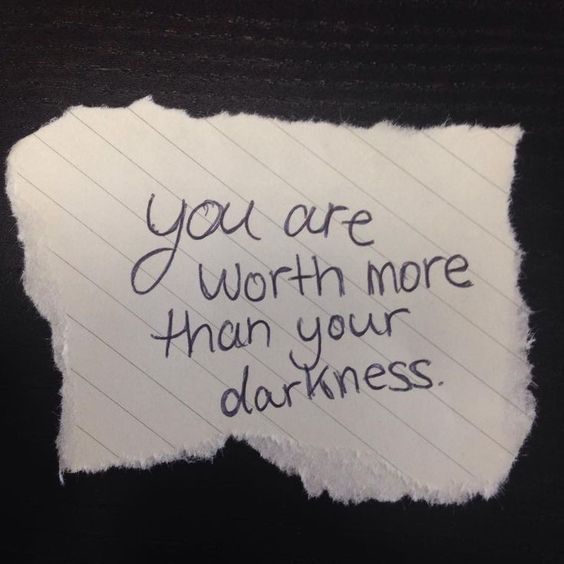 you are
worth more
than your
darkness.